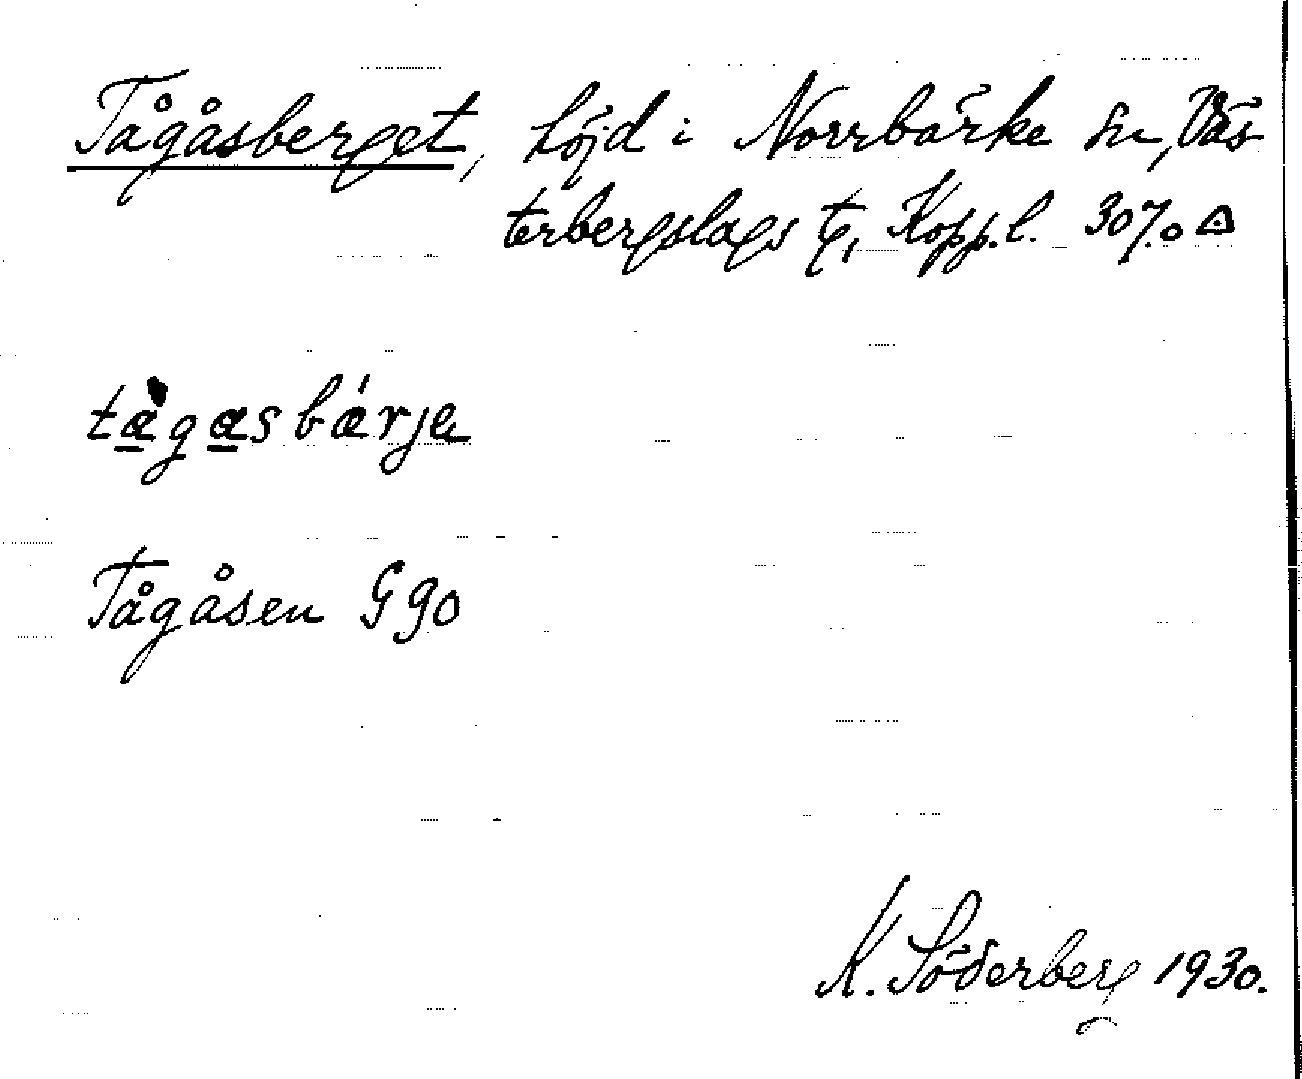 Tågåsberget, höjd i Norrbärke sn, Väs
terbergslags tg, Kopp. l. 307.0 △
tàgasbárje
Tågåsen G 90
K. Söderberg 1930.